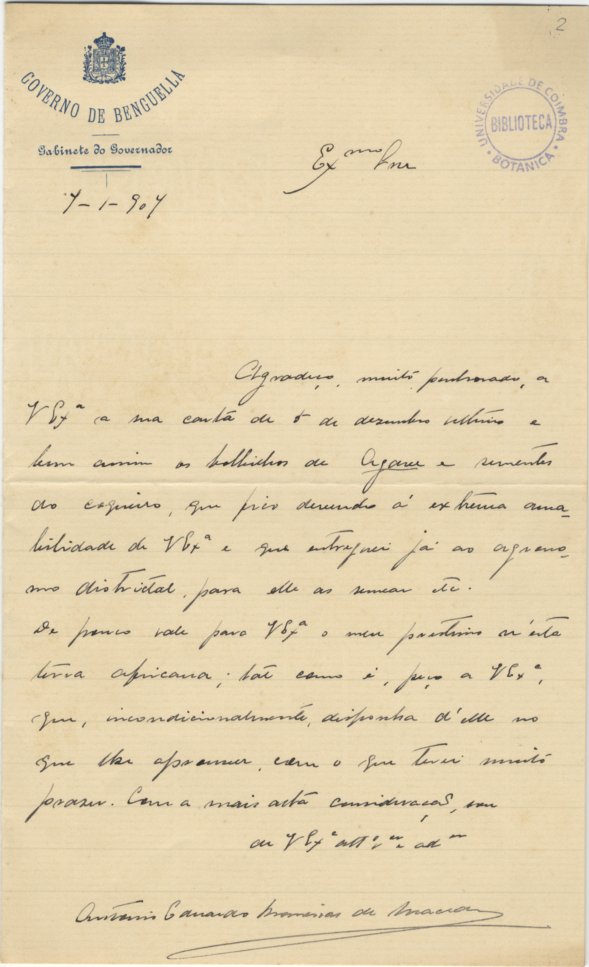 2
GOVERNO DE BENGUELLA
Gabinete do Governador
UNIVERSIDADE DE COIMBRA
BIBLIOTECA
BOTANICA
Ex.mo Snr
7-1-907
Agradeço, muito penhorado, a
V Ex.ª a sua carta de 5 de dezembro ultimo e
bem assim os bolbilhos de Agave e sementes
do coqueiro, que fico devendo á extrema ama-
bilidade de V Ex.ª e que entreguei já ao agrono-
mo districtal, para elle as semear etc.
De pouco vale para V Ex.ª o meu prestimo n'esta
terra africana; tal como é, peço a V Ex.ª,
que, incondicionalmente, disponha d'elle no
que lhe aprouver, com o que terei muito
prazer. Com a mais alta consideração, sou
de V Ex.ª att.º
Antonio Eduardo de Macedo